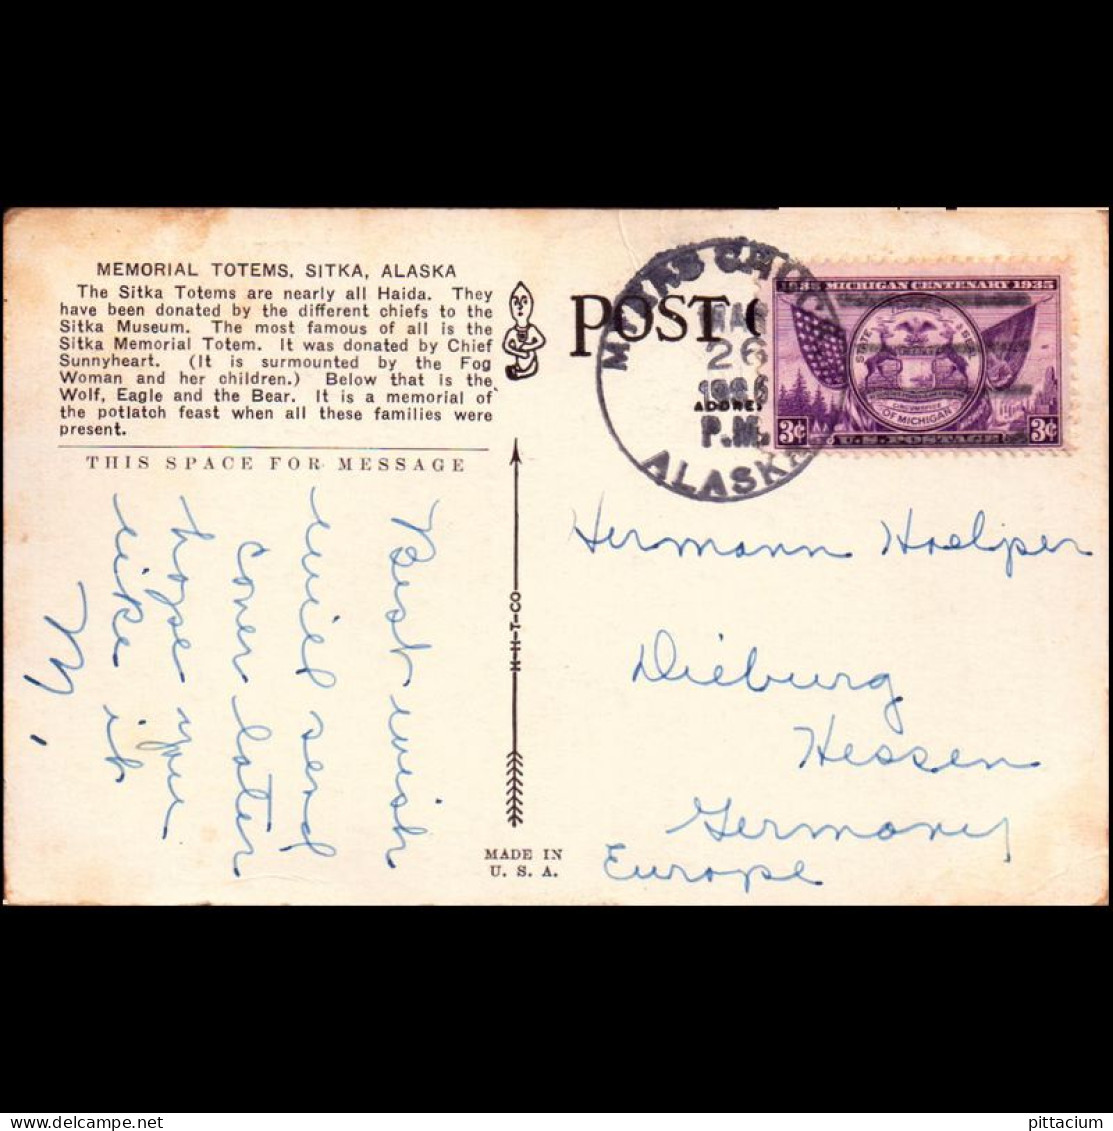 MEMORIAL TOTEMS, SITKA, ALASKA
The Sitka Totems are nearly all Haida. They
have been donated by the different chiefs to the
Sitka Museum. The most famous of all is the
Sitka Memorial Totem. It was donated by Chief
Sunnyheart. (It is surmounted by the Fog
Woman and her children.) Below that is the
Wolf, Eagle and the Bear. It is a memorial of
the potlatch feast when all these families were
present.
THIS SPACE FOR MESSAGE
Best wish
will send
cover later
hope you
like it
H-H-T-CO
MADE IN
U. S. A.
POST C
MAR
26
P.M.
ALASKA
MICHIGAN CENTENARY 1935
STATE
OF MICHIGAN
3¢ U.S. POSTAGE 3¢
Hermann Hoelper
Dieburg
Hessen
Germany
Europe
delcampe.net
pittacium